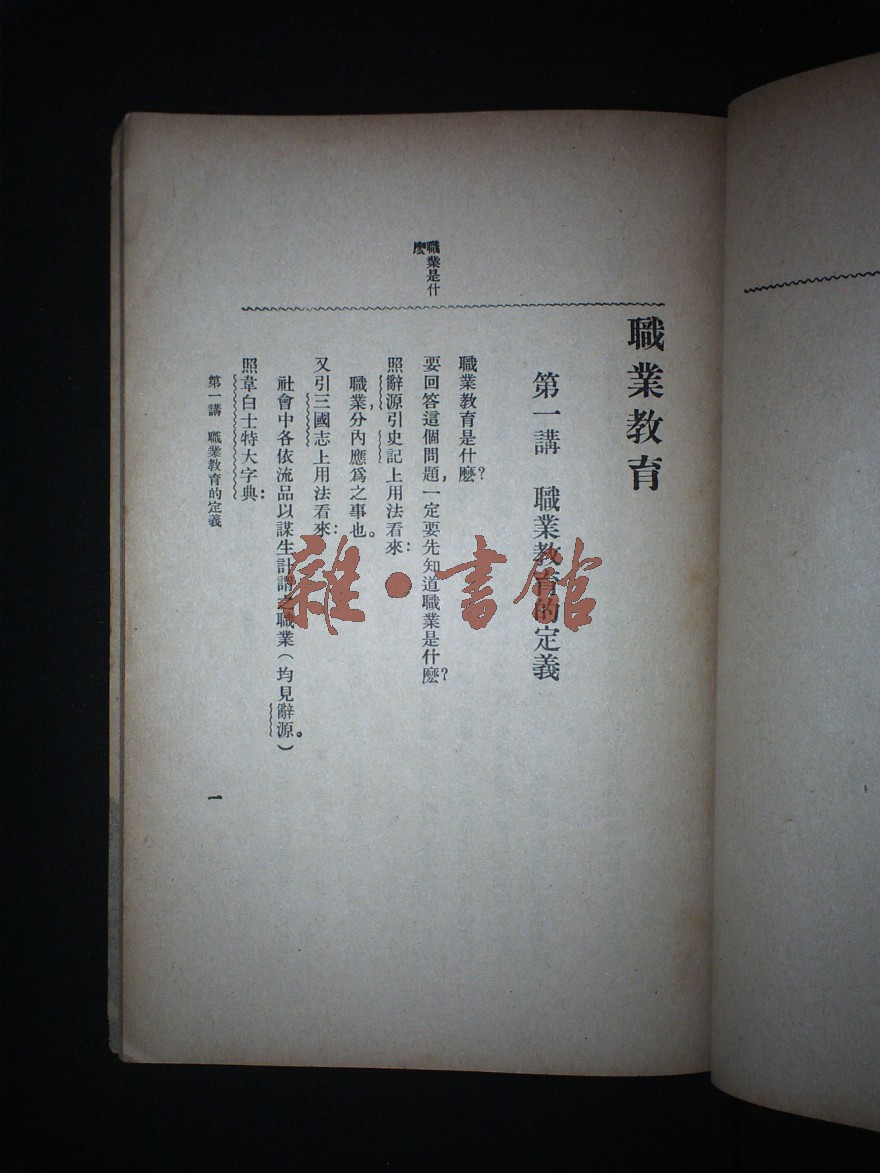 職業教育
第一講　職業教育的定義
職業是什
麼
職業教育是什麼？
要回答這個問題，一定要先知道職業是什麼？
照辭源引史記上用法看來：
職業，分內應爲之事也。
又引三國志上用法看來：
社會中各依流品以謀生計謂之職業（均見辭源。）
照韋白士特大字典：
第一講　職業教育的定義
一
雜·書館